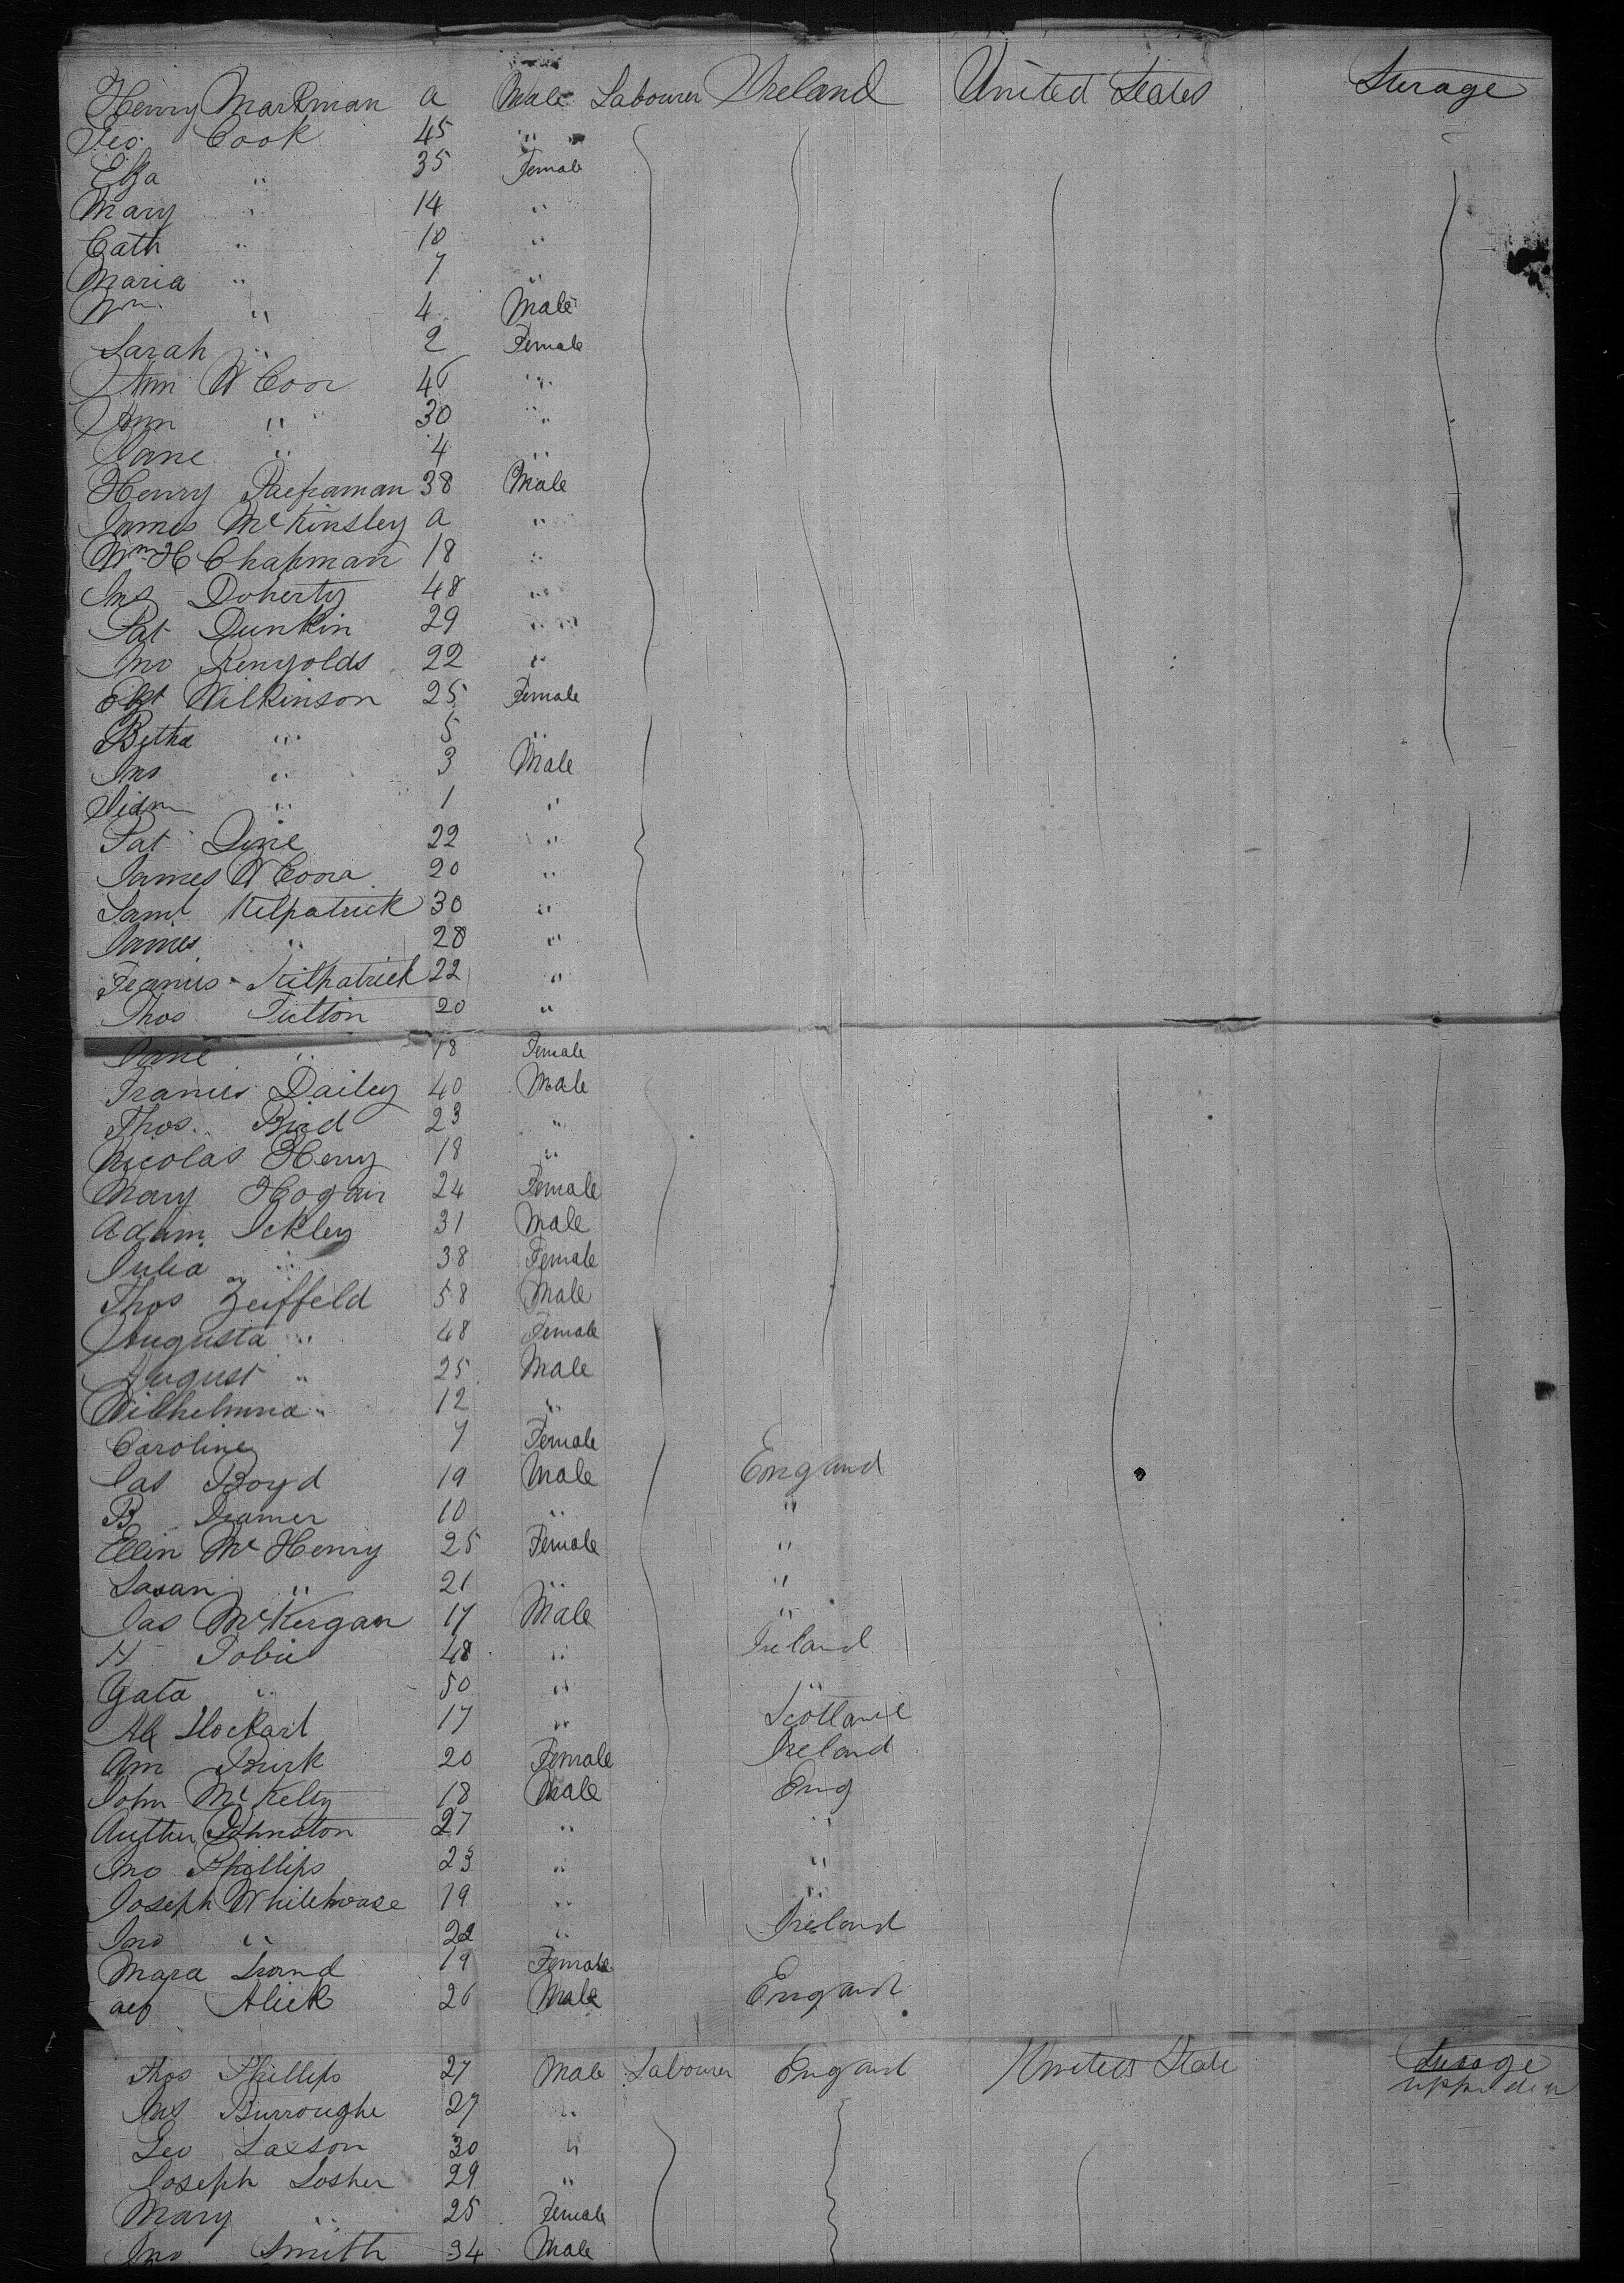 Henry Markman a Male Labourer Ireland United States Sterage
Geo. Cook 45 " "
Elza " 35 Female
Mary " 14 "
Cath " 10 "
Maria " 7 "
Wm " 4 Male
Sarah " 2 Female
Ann W Coor 46 "
Ann " 30 "
Jane " 4 "
Henry 38 Male
James McKinsley a "
Wm H Chapman 18 "
Jno Doherty 48 "
Pat Dunkin 29 "
Jno Renyolds 22 "
Elizt Wilkinson 25 Female
Betha " 5 "
Jno " 3 Male
" 1 "
Pat Dine 22 "
James W Coor 20 "
Saml Kilpatrick 30 "
James " 28 "
Francis Kilpatrick 22 "
Thos Tutton 20 "
Jane " 18 Female
Francis Dailey 40 Male
Thos. Bird 23 "
Nicolas Henry 18 "
Mary Hogan 24 Female
Adam Ickley 31 Male
Julia " 38 Female
Thos Zeiffeld 58 Male
Augusta " 48 Female
August " 25 Male
Wilhelmina " 12 "
Caroline 7 Female
Jas Boyd 19 Male Engand
B 10 " "
Ellin Mc Henry 25 Female "
Susan " 21 " "
Jas McKergan 17 Male "
H Tobin 48 " Ireland
Gata " 50 " "
Alx Lockart 17 " Scotland
Am Burk 20 Female Ireland
John McKelty 18 Male Eng
Author Johnston 27 " "
Jno Phillips 23 " "
Joseph Whitehouse 19 " "
Jno " 22 " Ireland
Mara 19 Female
Alick 26 Male Engand
Thos Phillips 27 Male Labourer Engand United State Sterage
Jno Burroughe 27 "
Geo Saxson 30 "
Joseph Losher 29 "
Mary " 25 Female
Jno Smith 34 Male